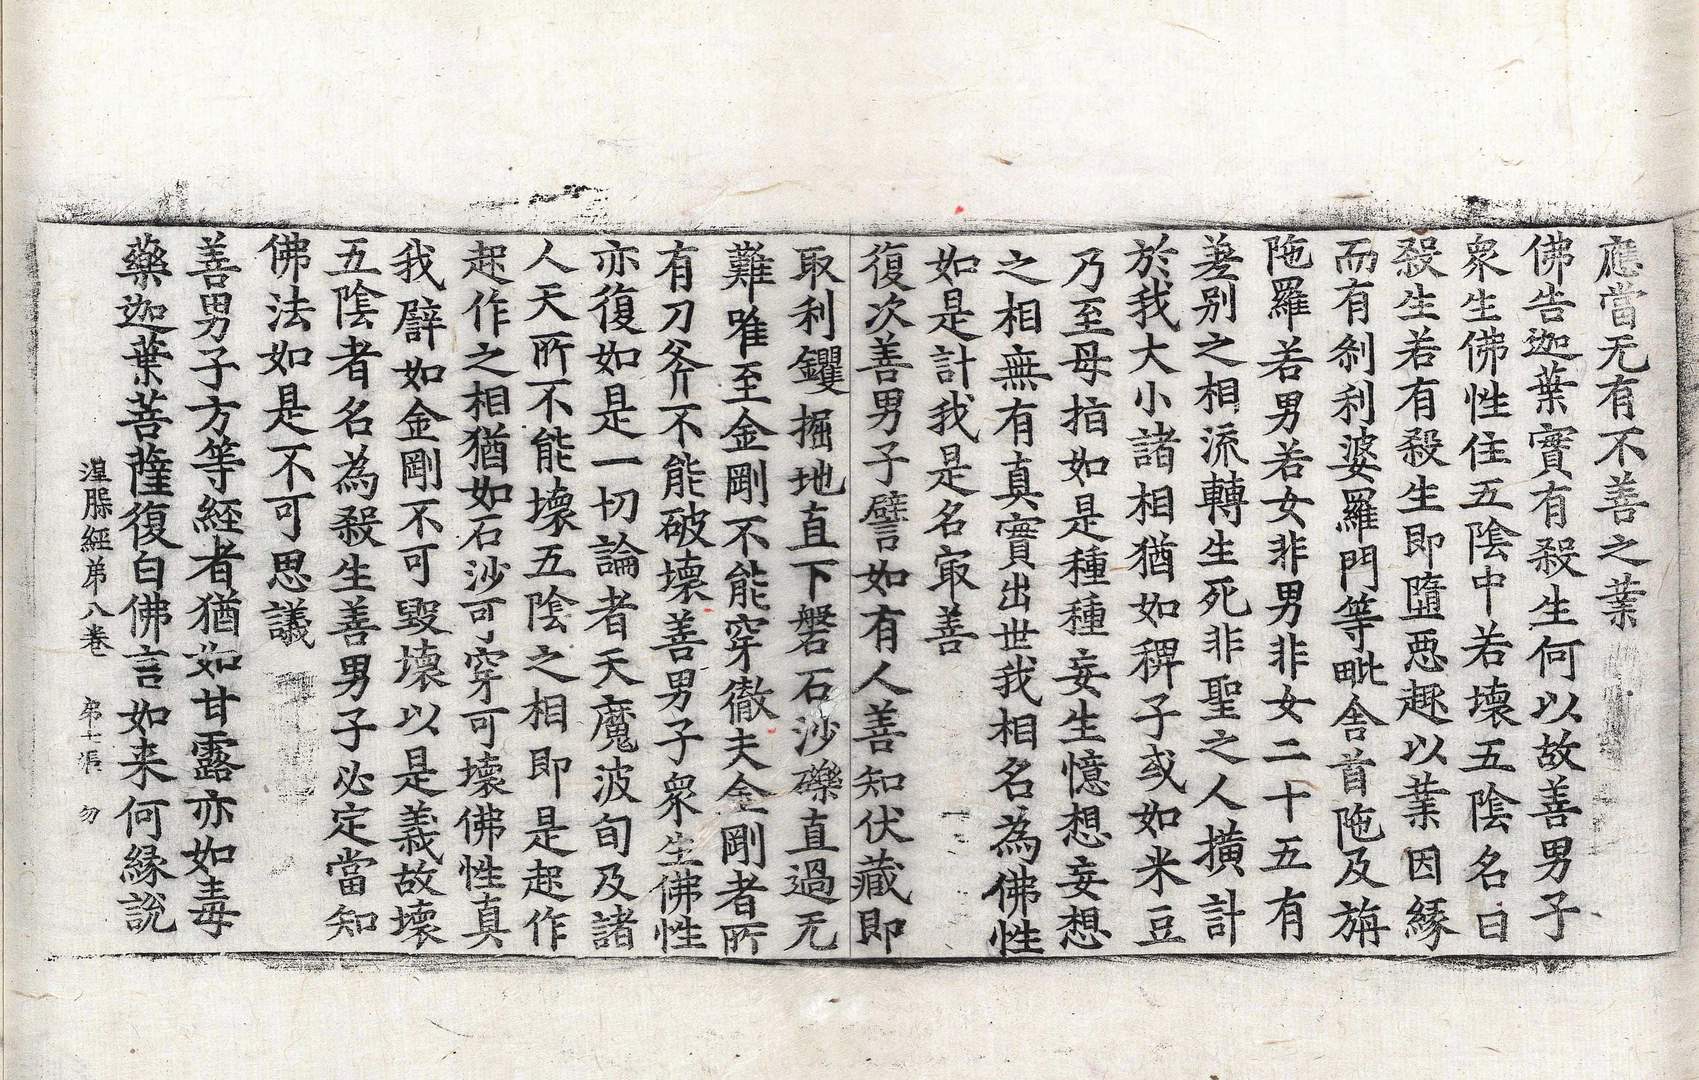 應當无有不善之業
佛告迦葉實有殺生何以故善男子
衆生佛性住五陰中若壞五陰名曰
殺生若有殺生即墮惡趣以業因緣
而有刹利婆羅門等毗舍首陁及旃
陁羅若男若女非男非女二十五有
差别之相流轉生死非聖之人撗計
於我大小諸相猶如稗子或如米豆
乃至母指如是種種妄生憶想妄想
之相無有真實出世我相名為佛性
如是計我是名㝡善
復次善男子譬如有人善知伏藏即
取利钁掘地直下磐石沙礫直過无
難唯至金剛不能穿徹夫金剛者所
有刀斧不能破壞善男子衆生佛性
亦復如是一切論者天魔波旬及諸
人天所不能壞五陰之相即是起作
起作之相猶如石沙可穿可壞佛性真
我譬如金剛不可毀壞以是義故壞
五陰者名為殺生善男子必定當知
佛法如是不可思議
善男子方等經者猶如甘露亦如毒
藥迦葉菩薩復白佛言如来何緣說
湼槃經第八卷 第十張 勿